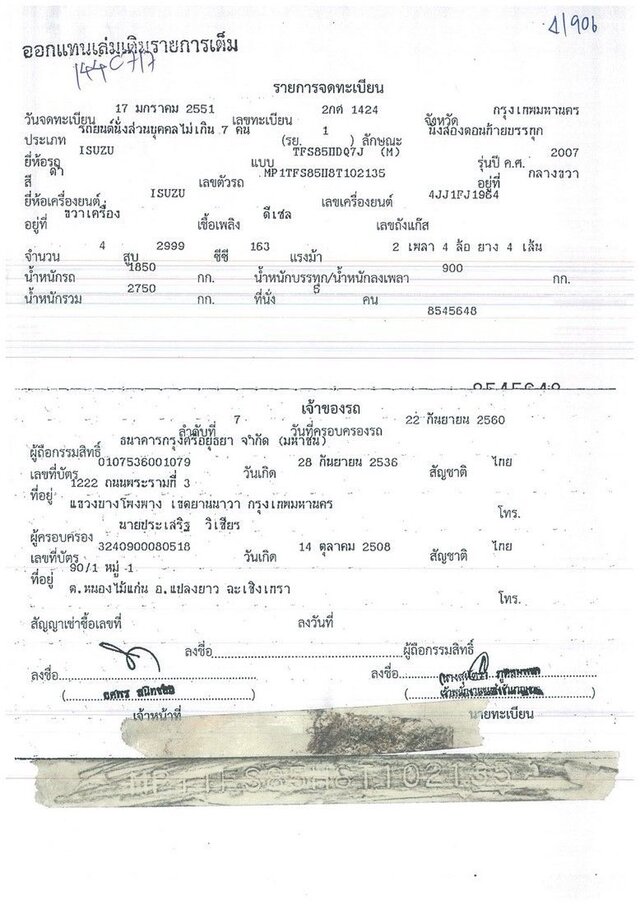 ออกแทนเล่มเดิมรายการเต็ม
รายการจดทะเบียน
วันจดทะเบียน 17 มกราคม 2551 เลขทะเบียน 2กศ 1424 จังหวัด กรุงเทพมหานคร
ประเภท รถยนต์นั่งส่วนบุคคลไม่เกิน 7 คน (รย. 1 ) ลักษณะ นั่งสองตอนท้ายบรรทุก
ยี่ห้อรถ ISUZU แบบ TFS85HDQ7J (M) รุ่นปี ค.ศ. 2007
สี ดำ เลขตัวรถ MP1TFS85H8T102135 อยู่ที่ กลางขวา
ยี่ห้อเครื่องยนต์ ISUZU เลขเครื่องยนต์ 4JJ1FJ1964
อยู่ที่ ขวาเครื่อง เชื้อเพลิง ดีเซล เลขถังแก๊ส
จำนวน 4 สูบ 2999 ซีซี 163 แรงม้า 2 เพลา 4 ล้อ ยาง 4 เส้น
น้ำหนักรถ 1850 กก. น้ำหนักบรรทุก/น้ำหนักลงเพลา 900 กก.
น้ำหนักรวม 2750 กก. ที่นั่ง 5 คน
8545648
8545648
เจ้าของรถ
ลำดับที่ 7 วันที่ครอบครองรถ 22 กันยายน 2560
ผู้ถือกรรมสิทธิ์ ธนาคารกรุงศรีอยุธยา จำกัด (มหาชน)
เลขที่บัตร 0107536001079 วันเกิด 28 กันยายน 2536 สัญชาติ ไทย
ที่อยู่ 1222 ถนนพระรามที่ 3
แขวงบางโพงพาง เขตยานนาวา กรุงเทพมหานคร
โทร.
ผู้ครอบครอง นายประเสริฐ วิเชียร
เลขที่บัตร 3240900080518 วันเกิด 14 ตุลาคม 2508 สัญชาติ ไทย
ที่อยู่ 90/1 หมู่ 1
ต.หนองไม้แก่น อ.แปลงยาว ฉะเชิงเทรา
โทร.
สัญญาเช่าซื้อเลขที่ ลงวันที่
ลงชื่อ ผู้ถือกรรมสิทธิ์
ลงชื่อ ลงชื่อ
เจ้าหน้าที่ นายทะเบียน
MP1TFS85H8T102135